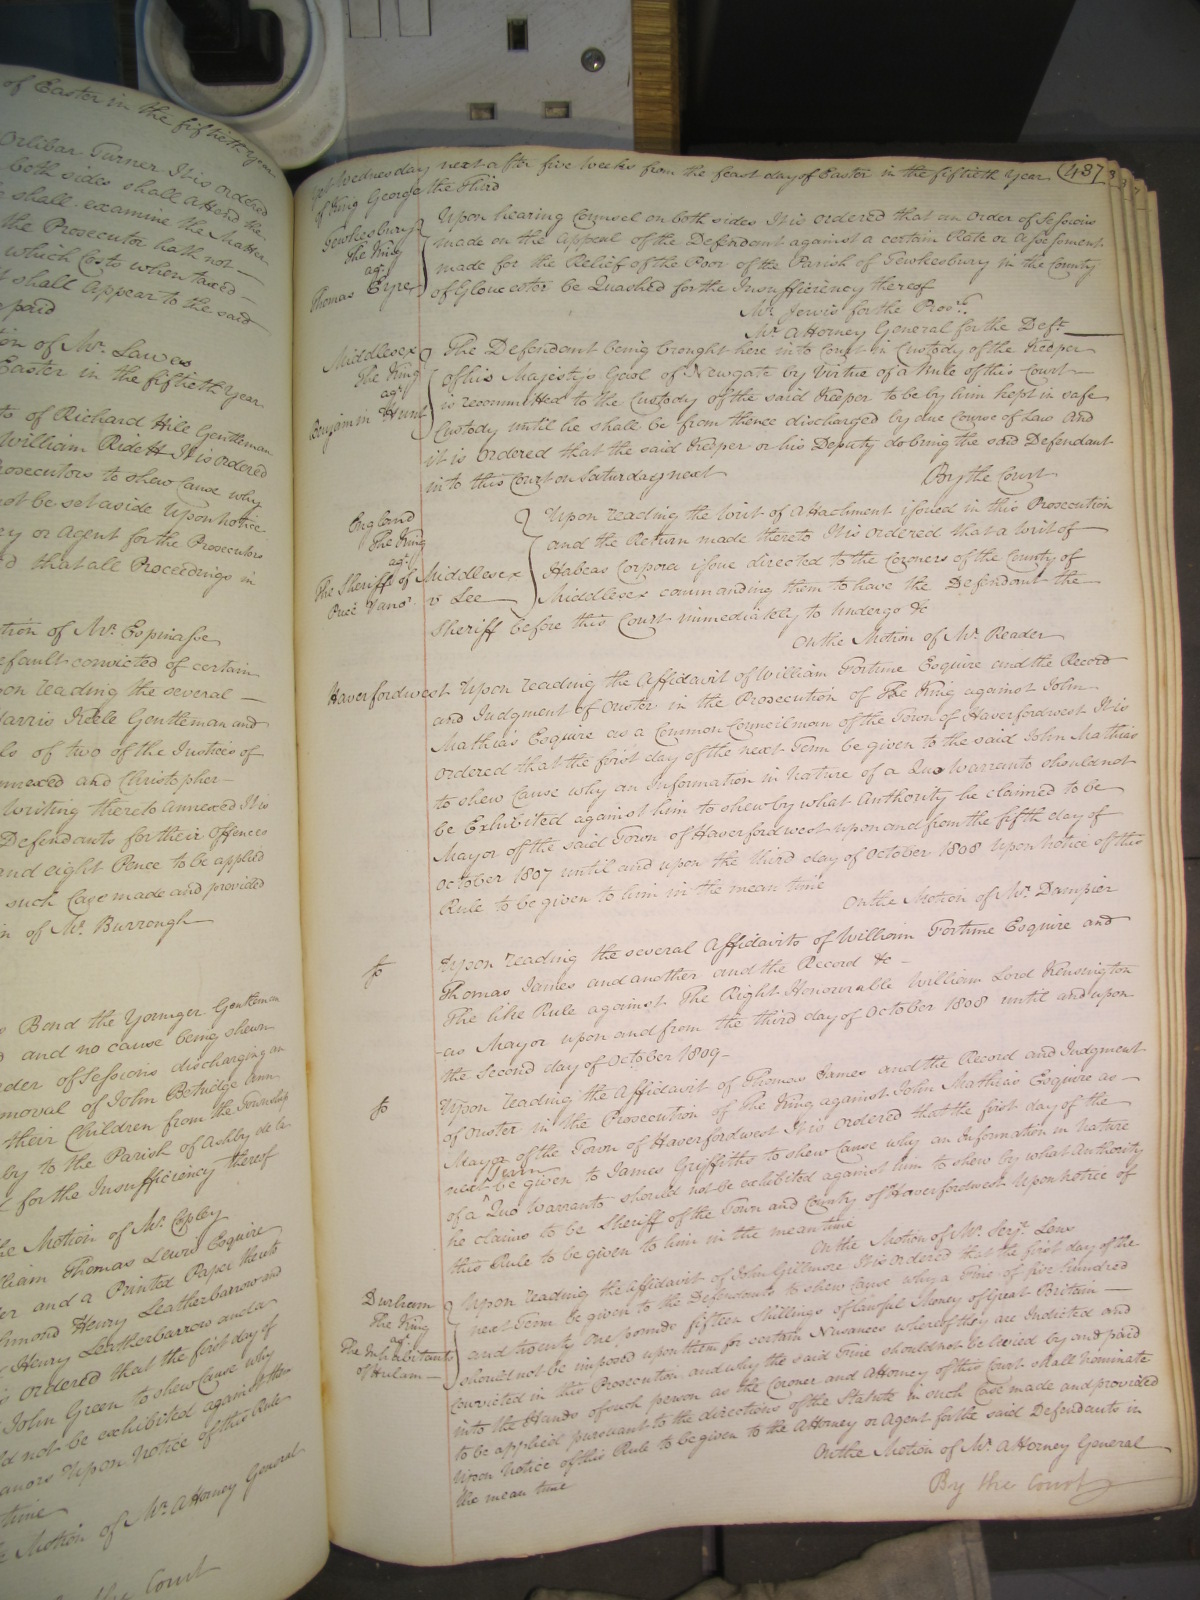 of Easter in the fiftieth Year
Orlibar Turner It is ordered
both sides shall attend the
shall examine the Matter
the Prosecutor hath not
which Costs when taxed
shall appear to the said
paid
of Mr. Lawes
Easter in the fiftieth Year
of Richard Hill Gentleman
William Ridett It is ordered
Prosecutors to shew Cause why
not be set aside Upon notice
or Agent for the Prosecutors
that all Proceedings in
of Mr. Espinasse
default convicted of certain
upon reading the several
Harris Keele Gentleman and
of two of the Justices of
annexed and Christopher
Writing thereto annexed It is
Defendants for their Offences
and eight Pence to be applied
such Case made and provided
of Mr. Burrough
Bond the Younger Gentleman
and no cause being shewn
order of Sessions discharging an
removal of John Betridge Ann
their Children from the Township
by to the Parish of Ashby de la
for the Insufficiency thereof
the Motion of Mr. Copley
William Thomas Lewis Esquire
and a Printed Paper thereto
Henry Leatherbarrow and
Henry Leatherbarrow and a
ordered that the first day of
John Green to shew Cause why
not be exhibited against them
Upon Notice of this Rule
time
Motion of Mr. Attorney General
the Court
Yet Wednesday next after five Weeks from the feast day of Easter in the fiftieth Year 487
of King George the Third
Tewkesbury Upon hearing Counsel on both sides It is ordered that an Order of Sessions
The King made on the Appeal of the Defendant against a certain Rate or Assessment
agt. made for the Relief of the Poor of the Parish of Tewkesbury in the County
Thomas Eyre of Gloucester be Quashed for the Insufficiency thereof
Mr. Jervis for the Prosr.
Mr. Attorney General for the Deft.
Middlesex The Defendant being brought here into Court in Custody of the Keeper
The King of his Majesty's Gaol of Newgate by Virtue of a Rule of this Court
agt. is recommitted to the Custody of the said Keeper to be by him kept in safe
Benjamin Hunt Custody until he shall be from thence discharged by due Course of Law And
it is ordered that the said Keeper or his Deputy do bring the said Defendant
into this Court on Saturday next
By the Court
England Upon reading the Writ of Attachment issued in this Prosecution
The King and the Return made thereto It is Ordered that a Writ of
agt. Habeas Corpora issue directed to the Coroners of the County of
The Sheriff of Middlesex Middlesex commanding them to have the Defendant the
v Lee Sheriff before this Court immediately to undergo &c
On the Motion of Mr. Reader
Haverfordwest Upon reading the Affidavit of William Fortune Esquire and the Record
and Judgment of Ouster in the Prosecution of The King against John
Mathias Esquire as a Common Councilman of the Town of Haverfordwest It is
ordered that the first day of the next Term be given to the said John Mathias
to shew Cause why an Information in Nature of a Quo Warranto should not
be Exhibited against him to shew by what Authority he claimed to be
Mayor of the said Town of Haverfordwest upon and from the fifth day of
October 1807 until and upon the third day of October 1808 Upon notice of this
Rule to be given to him in the mean time
On the Motion of Mr. Dampier
Upon reading the several Affidavits of William Fortune Esquire and
Thomas James and another and the Record &c
The like Rule against The Right Honourable William Lord Kensington
as Mayor upon and from the third day of October 1808 until and upon
the second day of October 1809
Upon reading the Affidavit of Thomas James and the Record and Judgment
of Ouster in the Prosecution of The King against John Mathias Esquire as
Mayor of the Town of Haverfordwest It is ordered that the first day of the
next Term be given to James Griffiths to shew Cause why an Information in Nature
of a Quo Warranto should not be exhibited against him to shew by what Authority
he claims to be Sheriff of the Town and County of Haverfordwest Upon Notice of
this Rule to be given to him in the mean time
On the Motion of Mr. Serjt. Lens
Durham Upon reading the Affidavit of John Gillmore It is ordered that the first day of the
The King next Term be given to the Defendants to shew Cause why a Fine of five hundred
agt. and twenty One pounds fifteen Shillings of lawful Money of Great Britain
The Inhabitants should not be imposed upon them for certain Nusances whereof they are Indicted and
of Hulam convicted in this Prosecution and why the said Fine should not be levied by and paid
into the Hands of such person as the Coroner and Attorney of this Court shall nominate
to be applied pursuant to the directions of the Statute in such Case made and provided
Upon Notice of this Rule to be given to the Attorney or Agent for the said Defendants in
the mean time
On the Motion of Mr. Attorney General
By the Court